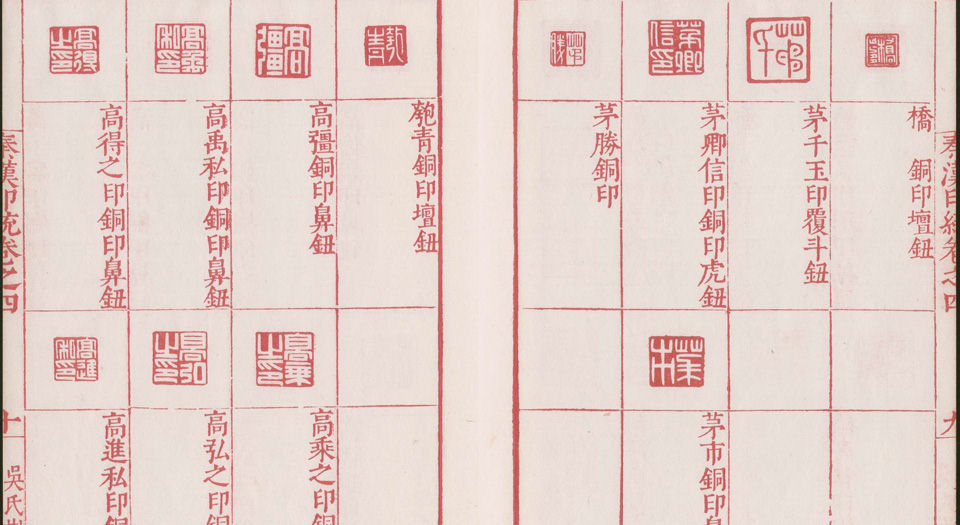 秦漢印統卷之四
九
橋 銅印壇鈕
茅千玉印覆斗鈕
茅卿信印銅印虎鈕
茅勝銅印
茅市銅印鼻
青銅印壇鈕
高彊銅印鼻鈕
高禹私印銅印鼻鈕
高得之印銅印鼻鈕
高乘之印銅
高弘之印銅
高進私印銅
秦漢印統卷之四
十
吳氏